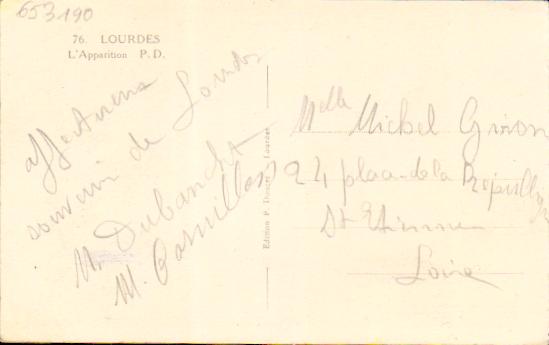 653190
76. LOURDES
L'Apparition P. D.
affectueux
souvenir de Lourdes
Mr Dubanchet
M.
Edition P. Doucet Lourdes
Melle Michel Giron
24 place de la République
St Etienne
Loire